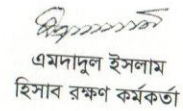 এমদাদুল ইসলাম
হিসাব রক্ষণ কর্মকর্তা